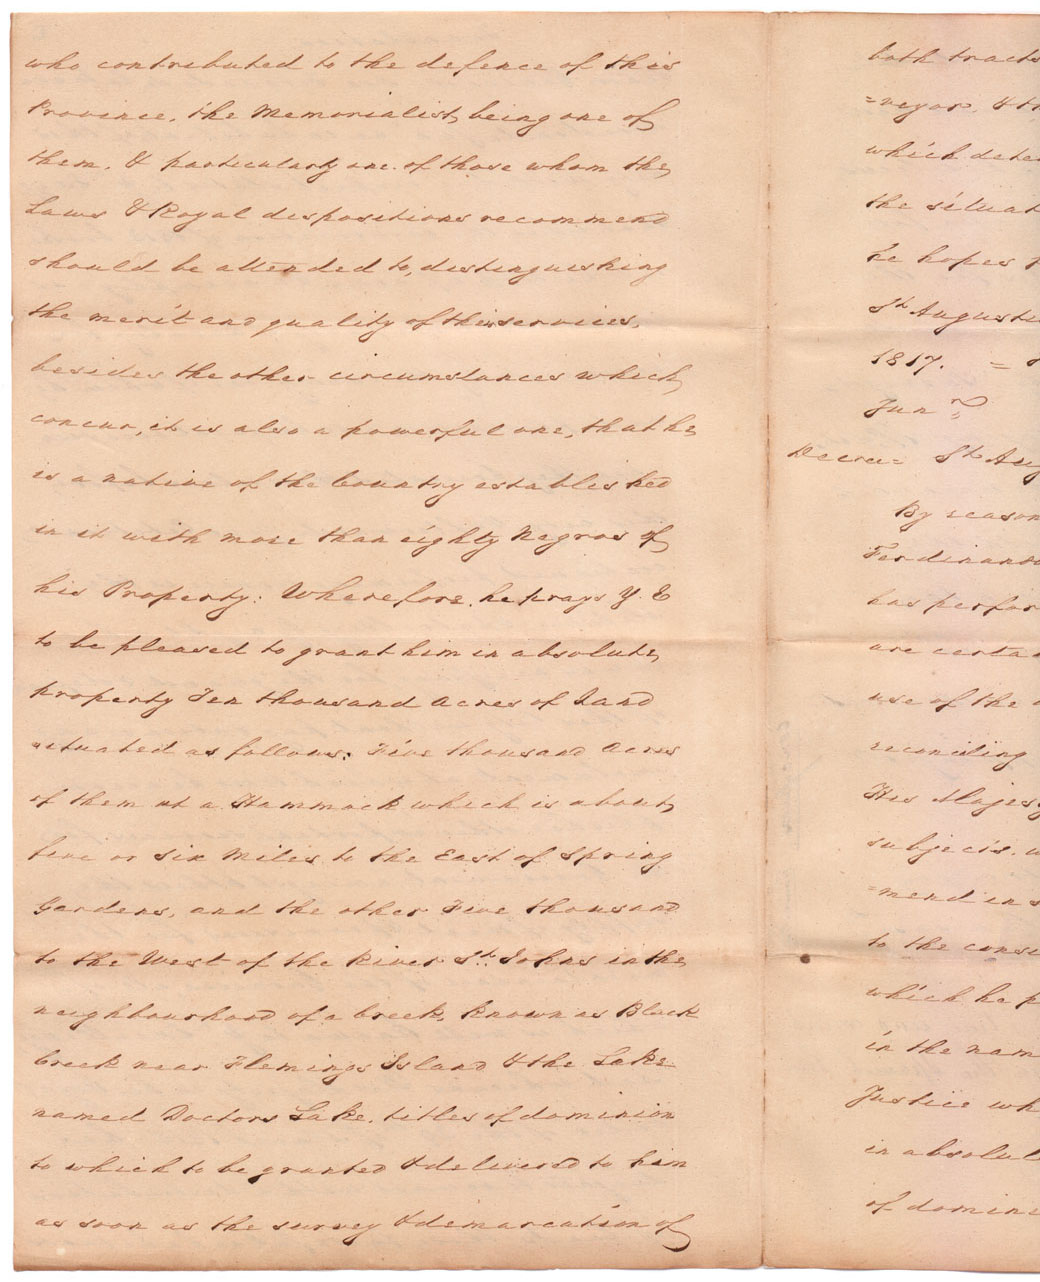 who contributed to the defence of this
Province, the Memorialist, being one of
them, & particularly one of those whom the
Laws & Royal dispositions recommend
should be attended to, distinguishing
the merit and quality of their services,
besides the other circumstances which
concur, it is also a powerful one, that he
is a native of the Country established
in it with more than eighty Negros of
his Property: Wherefore, he prays Y. E
to be pleased to grant him in absolute
property Ten thousand Acres of Land
situated as follows: Five thousand Acres
of them at a Hammock which is about
five or six Miles to the East of Spring
Gardens, and the other Five thousand
to the West of the River St. Johns in the
neighbourhood of a Creek, known as Black
Creek near Flemings Island & the Lake
named Doctors Lake, titles of dominion
to which to be granted & delivered to him
as soon as the survey & demarcation of
both tracts
=veyor, & th
which dete
the situat
he hopes
St Augusti
1817. =
Junr
Decree = St Aug
By reason
Ferdinand
has perfor
are certa
use of the
reconciling
His Majes
subjects,
=mend in
to the consi
which he p
in the nam
Justice wh
in absolut
of domini